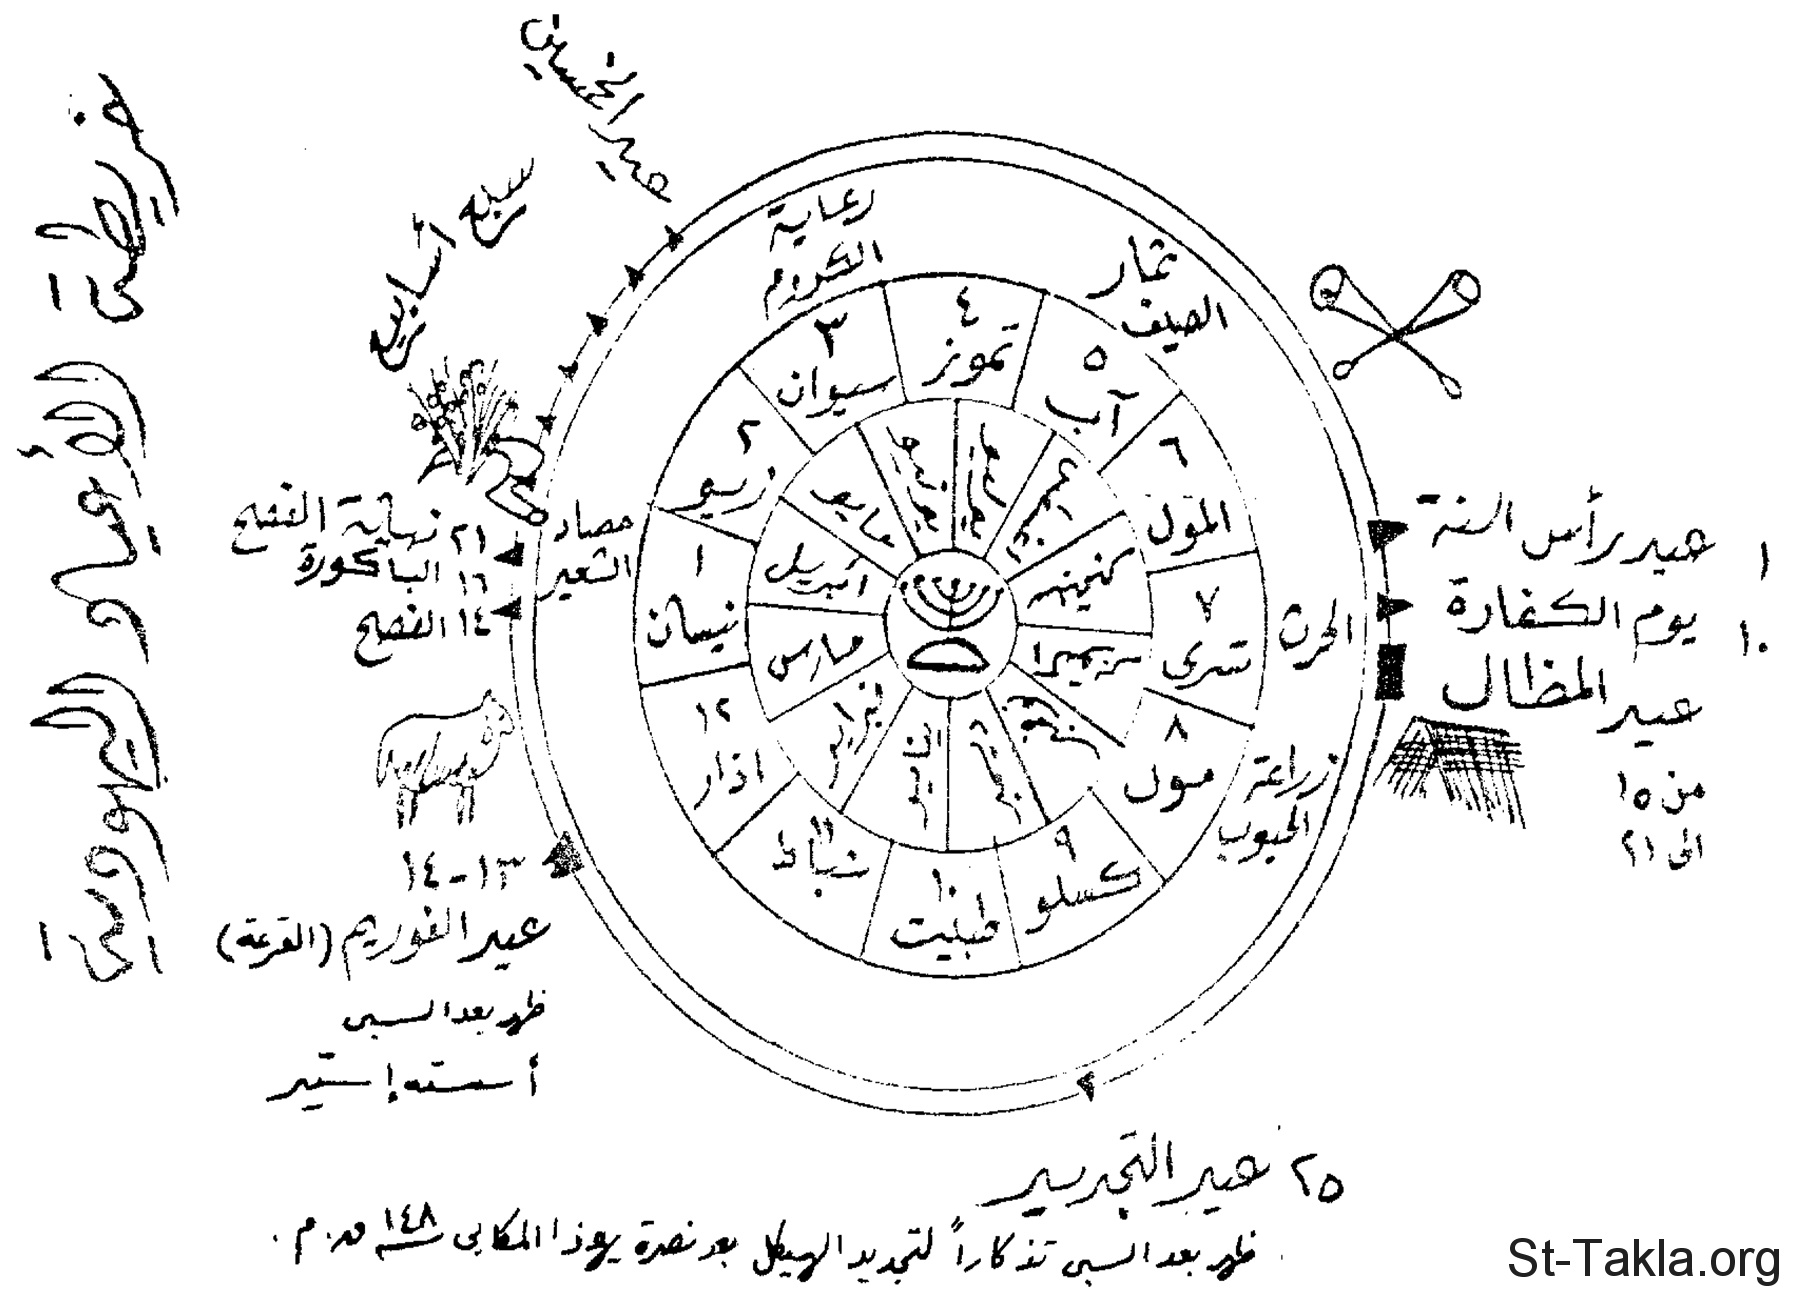 خريطة الأعياد اليهودية
عيد الخمسين
سبعة أسابيع
رعاية
الكروم
ثمار
الصيف
٤
تموز
٣
سيوان
٥
آب
٢
زيو
٦
المول
حصاد
الشعير
١
نيسان
٧
تسرى
الحرث
١٢
اذار
٨
مول
زراعة
الحبوب
١١
شباط
١٠
طيبيت
٩
كسلو
مايو
ابريل
مارس
فبراير
٢١ نهاية الفصح
١٦ الباكورة
١٤ الفصح
١ عيد رأس السنة
١٠ يوم الكفارة
عيد المظال
من ١٥
الى ٢١
١٣-١٤
عيد الفوريم (القرعة)
ظهر بعد السبى
أسسته إستير
٢٥ عيد التجديد
ظهر بعد السبى تذكاراً لتجديد الهيكل بعد نصرة يهوذا المكابى سنة ١٤٨ ق.م.
St-Takla.org